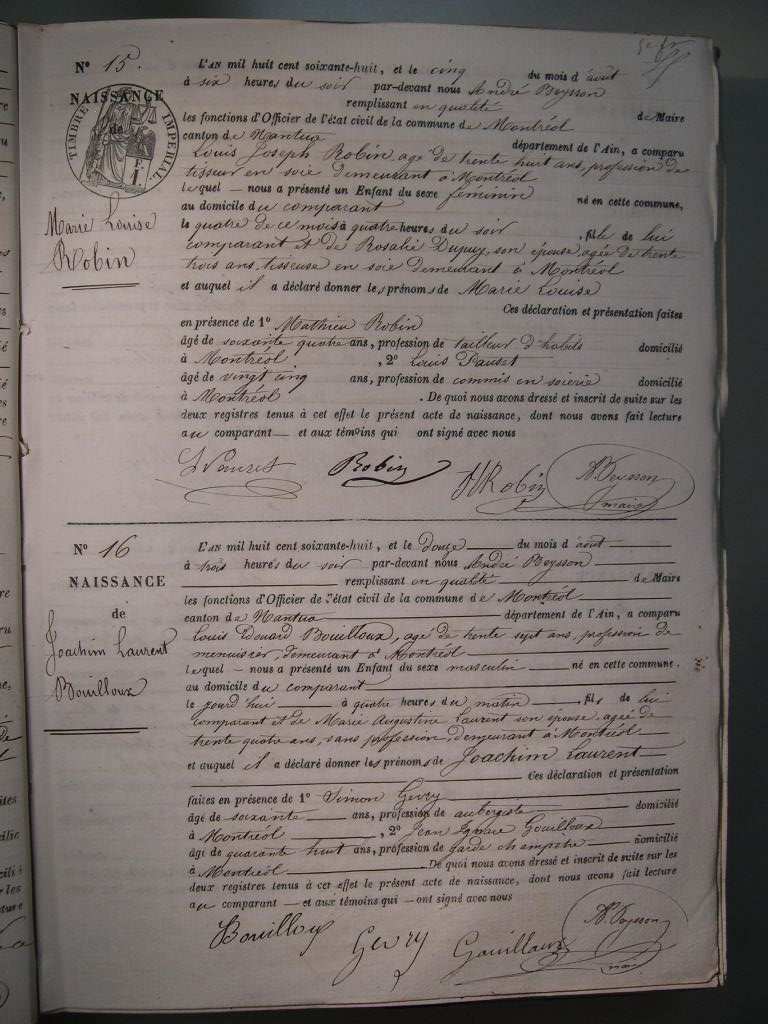 N° 15.
NAISSANCE
de
TIMBRE IMPÉRIAL
Marie Louise
Robin
L'AN mil huit cent soixante-huit, et le cinq du mois d'août
à six heures du soir par-devant nous André Beysson
remplissant en qualité de Maire
les fonctions d'Officier de l'état civil de la commune de Montréol
canton de Nantua département de l'Ain, a comparu
Louis Joseph Robin, agé de trente huit ans, profession de
tisseur en soie demeurant à Montréol
lequel — nous a présenté un Enfant du sexe féminin
au domicile du comparant né en cette commune,
le quatre de ce mois à quatre heures du soir , fille de lui
comparant et de Rosalie Dupuy, son épouse, agée de trente
trois ans, tisseuse en soie demeurant à Montréol
et auquel il a déclaré donner les prénoms de Marie Louise
Ces déclaration et présentation faites
en présence de 1° Mathieu Robin
âgé de soixante quatre ans, profession de tailleur d'habits domicilié
à Montréol , 2° Louis Pauset
âgé de vingt cinq ans, profession de commis en soierie domicilié
à Montréol . De quoi nous avons dressé et inscrit de suite sur les
deux registres tenus à cet effet le présent acte de naissance, dont nous avons fait lecture
au comparant — et aux témoins qui ont signé avec nous
Robin Robin A. Beysson
maire
N° 16
NAISSANCE
de
Joachim Laurent
Bouilloux
L'AN mil huit cent soixante-huit, et le douze du mois d'août
à trois heures du soir par-devant nous André Beysson
remplissant en qualité de Maire
les fonctions d'Officier de l'état civil de la commune de Montréol
canton de Nantua département de l'Ain, a comparu
Louis Edouard Bouilloux, agé de trente sept ans, profession de
menuisier, demeurant à Montréol
lequel — nous a présenté un Enfant du sexe masculin né en cette commune.
au domicile du comparant
le jourd'hui à quatre heures du matin , fils de lui
comparant et de Marie Augustine Laurent son épouse, agée de
trente quatre ans, sans profession, demeurant à Montréol
et auquel il a déclaré donner les prénoms de Joachim Laurent
Ces déclaration et présentation
faites en présence de 1° Simon Gevry
âgé de soixante ans, profession de aubergiste domicilié
à Montréol , 2° Jean Gouilloux
âgé de quarante huit ans, profession de garde champetre domicilié
à Montréol De quoi nous avons dressé et inscrit de suite sur les
deux registres tenus à cet effet le présent acte de naissance, dont nous avons fait lecture
au comparant — et aux témoins qui — ont signé avec nous
Bouilloux Gevry Gouilloux A. Beysson